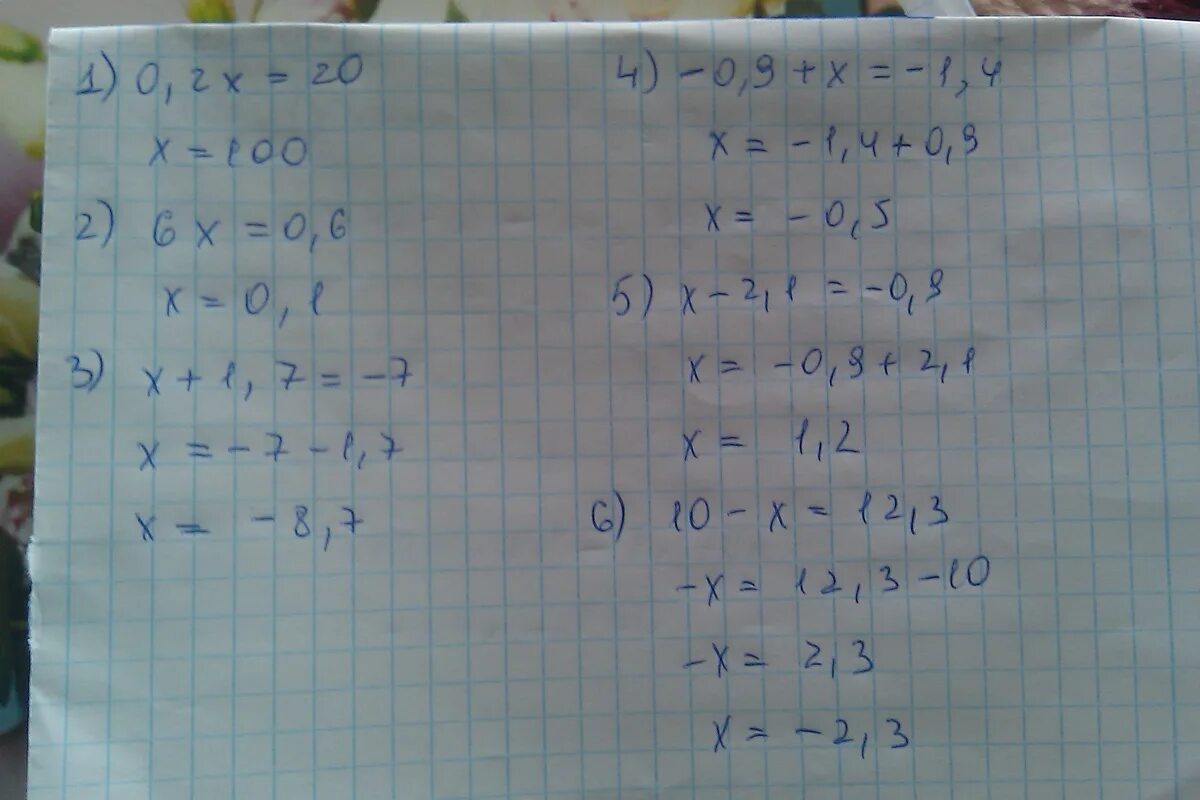 1) 0,2x = 20
x = 100
2) 6x = 0,6
x = 0,1
3) x + 1,7 = -7
x = -7 - 1,7
x = -8,7
4) -0,9 + x = -1,4
x = -1,4 + 0,9
x = -0,5
5) x - 2,1 = -0,9
x = -0,9 + 2,1
x = 1,2
6) 10 - x = 12,3
-x = 12,3 - 10
-x = 2,3
x = -2,3